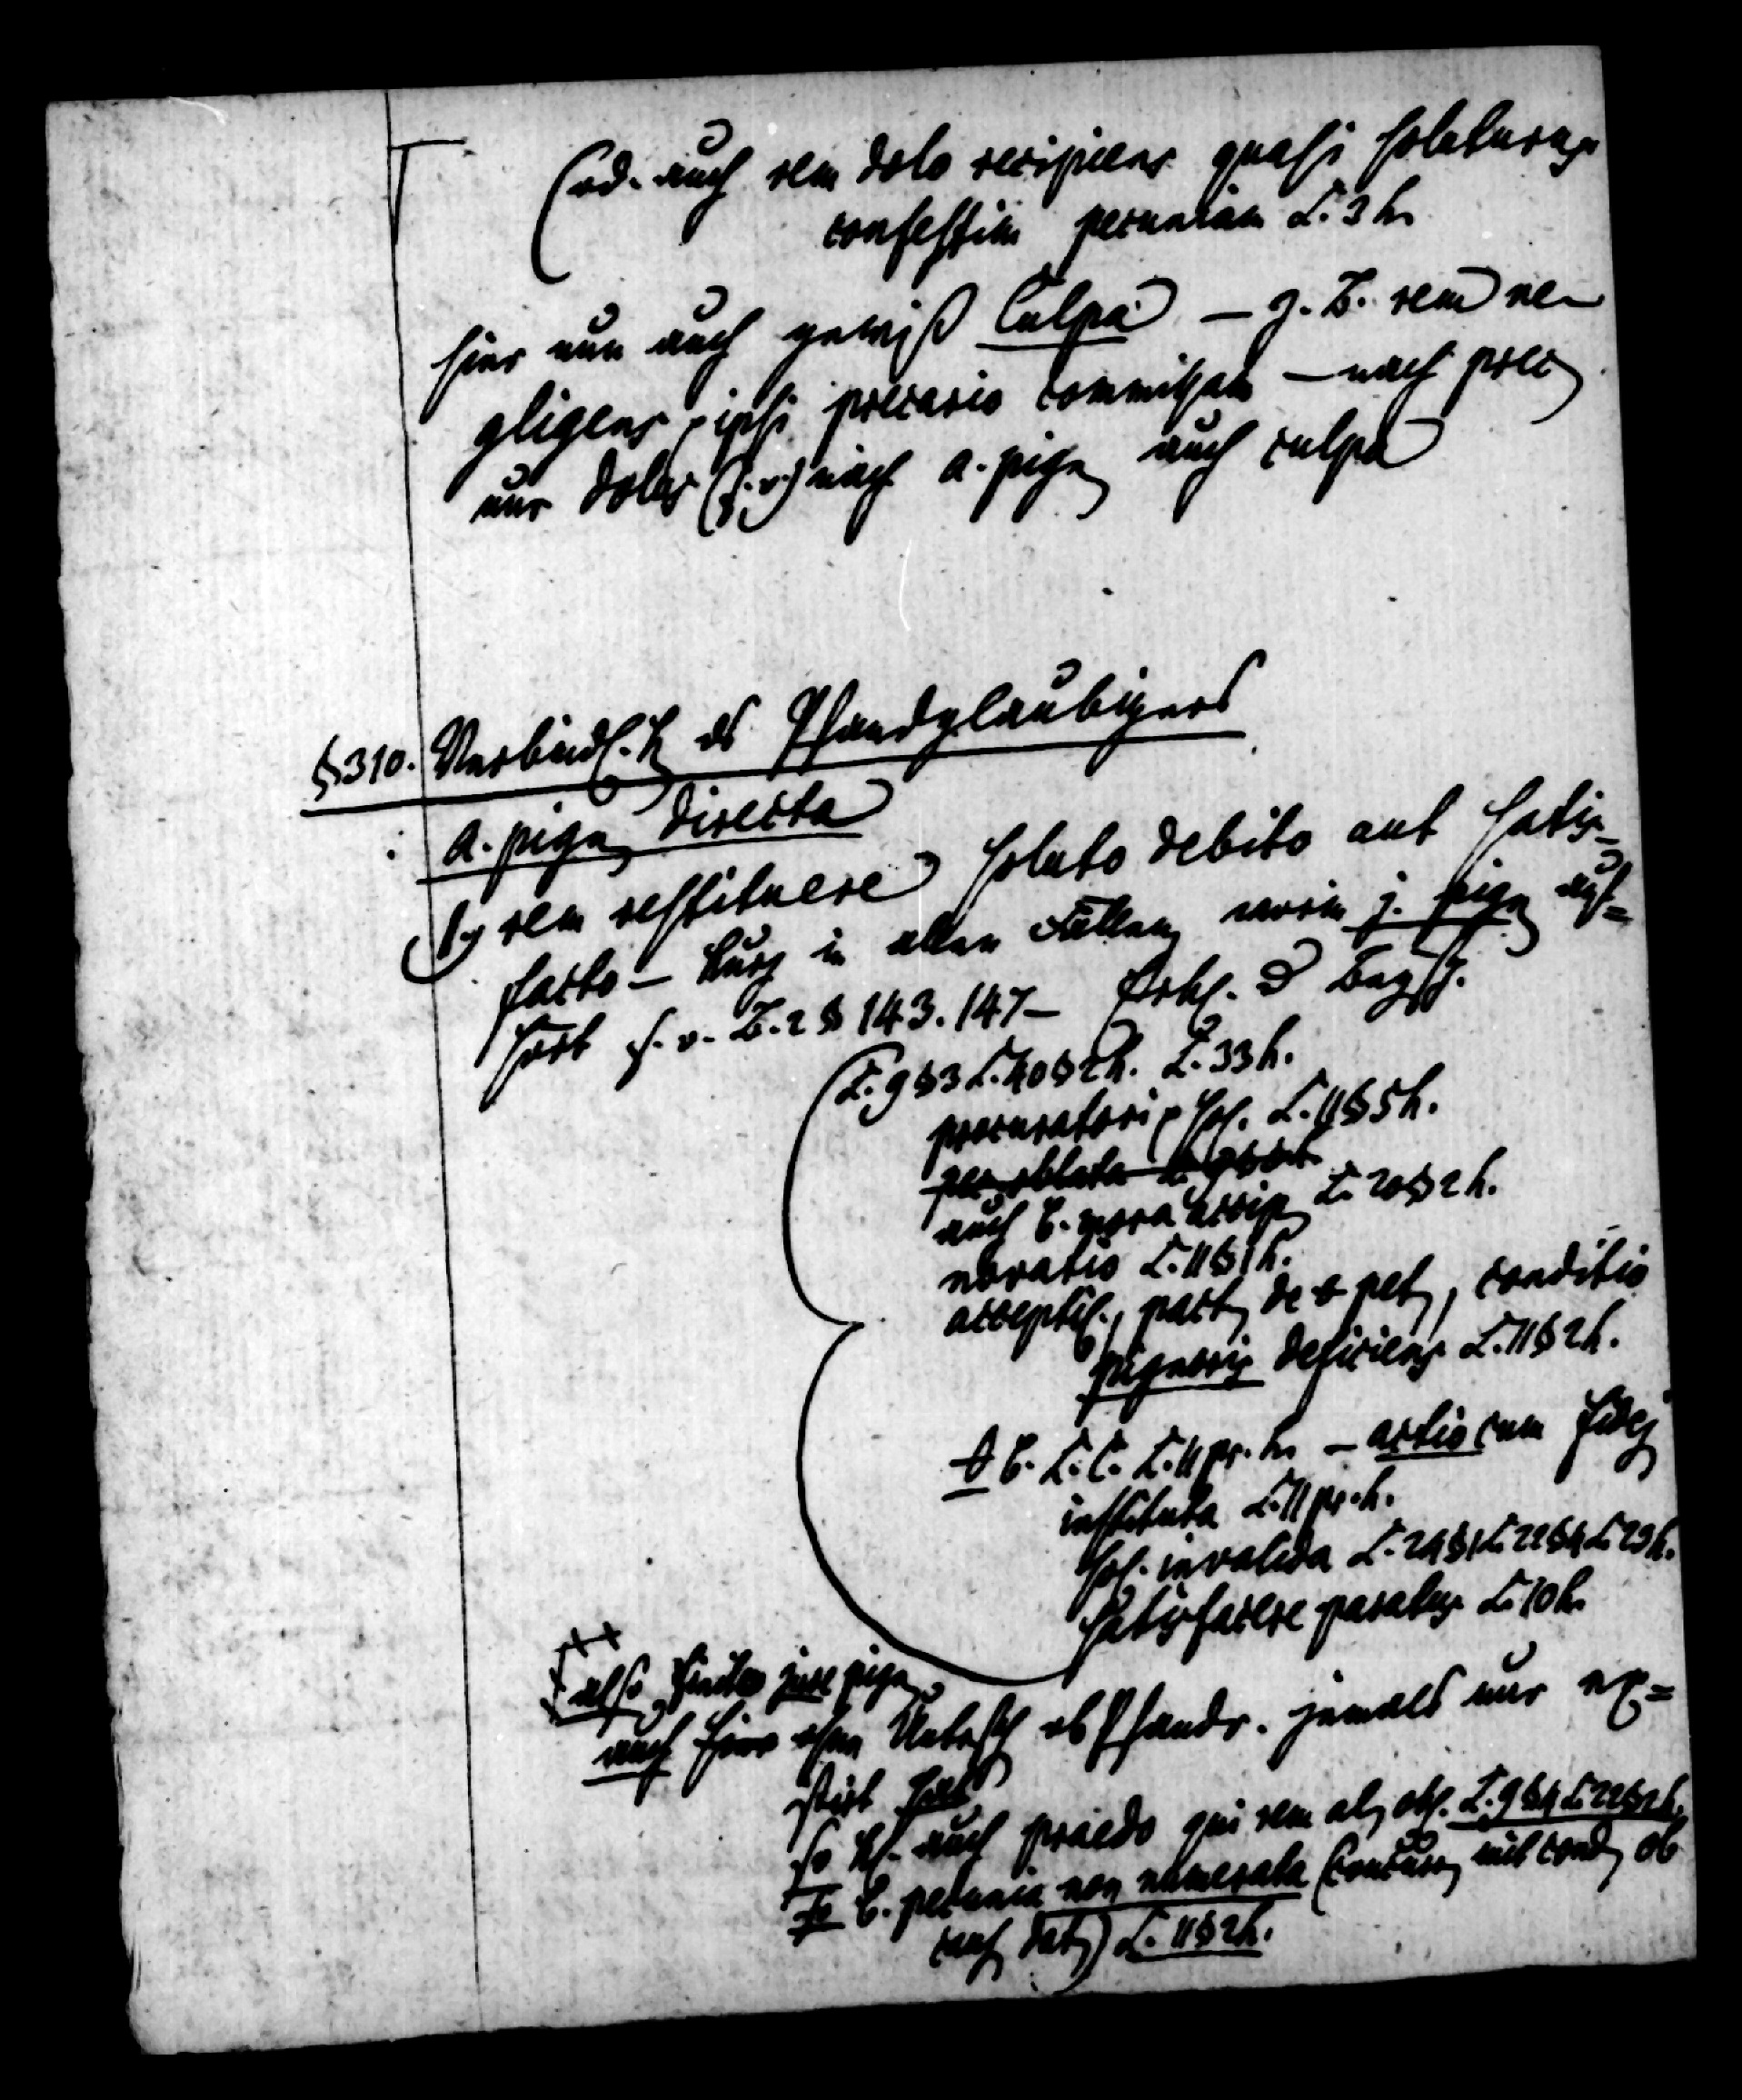 (od. auch rem dolo recipiens quasi soluturus
confestim pecuniam L. 3 h.
hier nun auch gewiß Culpa – z. B. rem ne-
gligens, ipsi precario commissam – nach prec
nur dolus (s. v.) nach a. pign auch culpa
§310. Verbindl.k ds Pfandgläubigers
: a. pign directa
1, rem restituere soluto debito aut satis-
facto – kurz in allen Fällen worin j. pign auf=
hört s. v. B. 2 § 143. 147 –
(L. 9 § 3 L. 40 § 2 h. L. 33 h.
procuratori sol. L. 11 § 5 h.
auch b. mora accip L. 20 § 2 h.
novatio L. 11 § 1 h.
acceptil., pact de petend, conditio
pignoris deficiens L. 11 § 2 h.
b. L. C. L. 11 pr. h. – actio cum fidej
instituta L. 11 pr. h.
sol. invalida L. 24 § 1 L. 22 § 4 L. 29 h.
satisfacere paratus L. 10 h.
also finito jure pign
auch hier ohne Untersch ob Pfandr. jemals nur exi=
stirt hat
so auch praedo qui rem al obl. L. 9 § 4 L. 22 § 2 h.
so b. pecunia non numerata (Concurs mit cond ob
caus dat) L. 11 § 2 h.